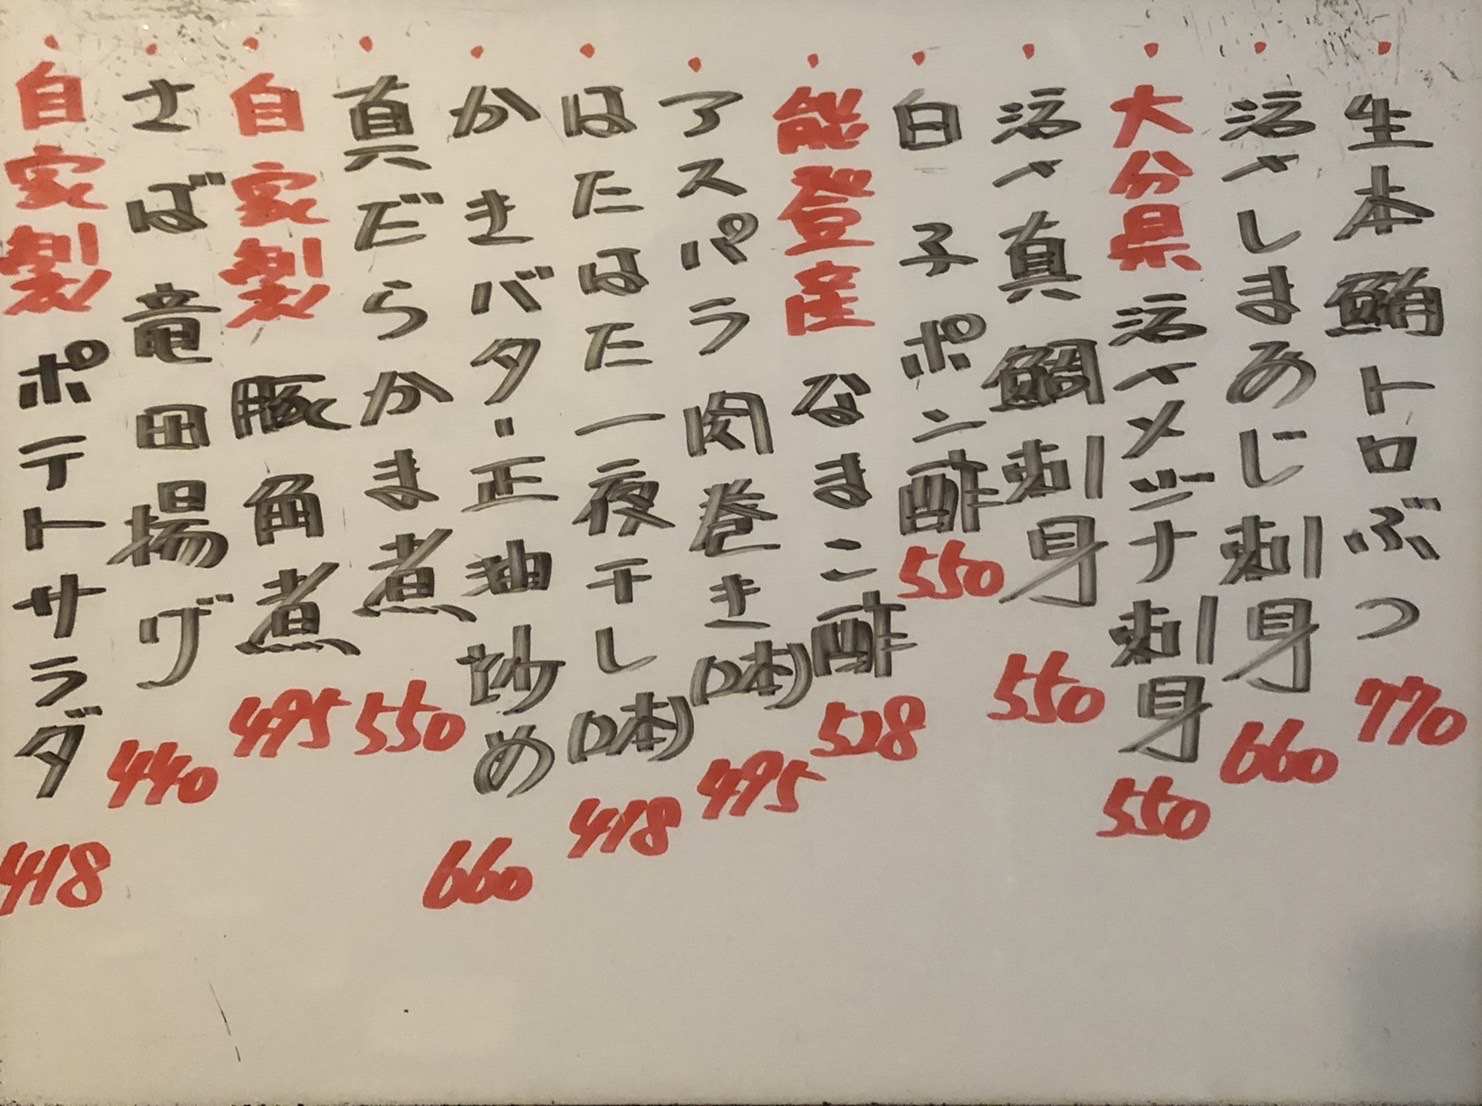 ・生本鮪トロぶつ 770
・活〆しまあじ刺身 660
・大分県 活〆メジナ刺身 550
・活〆真鯛刺身 550
・白子ポン酢 550
・能登産 なまこ酢 528
・アスパラ肉巻き(2本) 495
・はたはた一夜干し(2本) 418
・かきバター正油炒め 660
・真だらかま煮 550
・自家製 豚角煮 495
・さば竜田揚げ 440
・自家製 ポテトサラダ 418